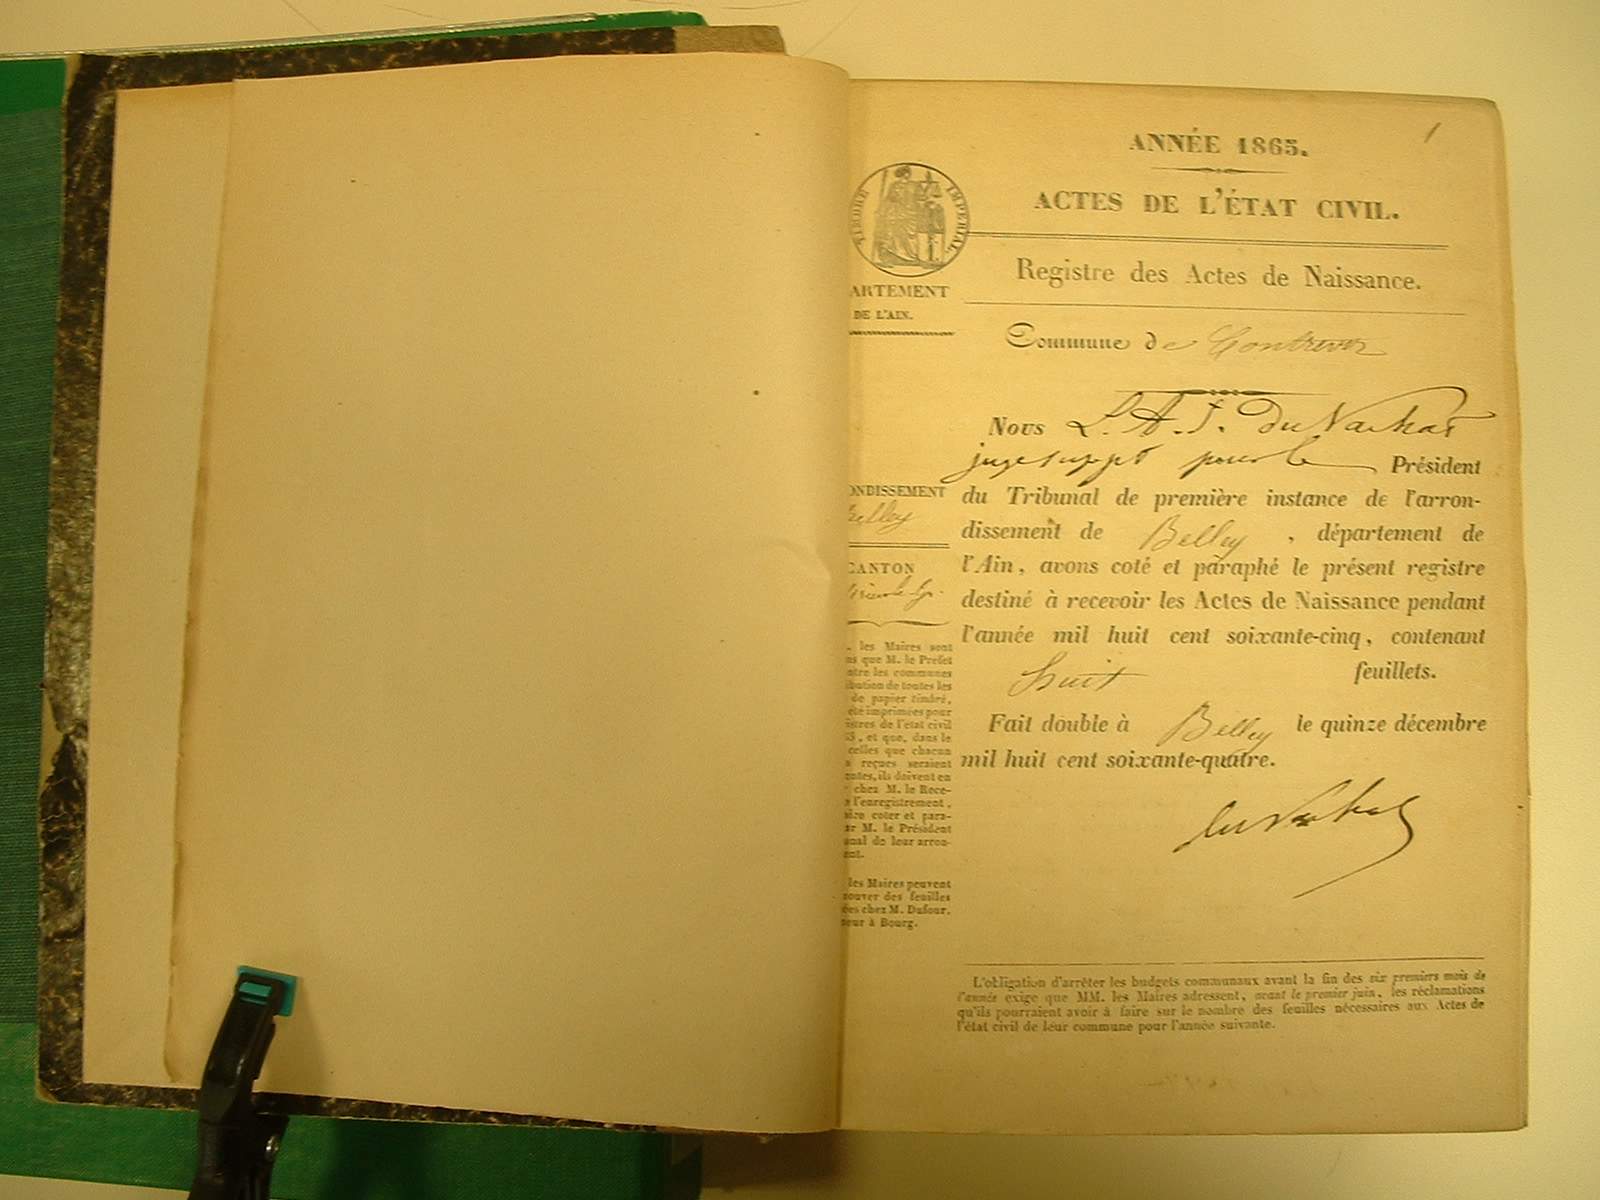 1
ANNÉE 1865.
ACTES DE L'ÉTAT CIVIL.
TIMBRE IMPERIAL
Registre des Actes de Naissance.
ARTEMENT
DE L'AIN.
Commune de Contrevoz
Nous L. A. J. Du
juge suppt pour le Président
du Tribunal de première instance de l'arron-
dissement de Belley, département de
l'Ain, avons coté et paraphé le présent registre
destiné à recevoir les Actes de Naissance pendant
l'année mil huit cent soixante-cinq, contenant
huit feuillets.
Fait double à Belley le quinze décembre
mil huit cent soixante-quatre.
ONDISSEMENT
Belley
CANTON
les Maires sont
que M. le Préfet
les communes
bution de toutes les
de papier timbré,
été imprimées pour
istres de l'état civil
, et que, dans le
celles que chacun
reçues seraient
antes, ils doivent en
chez M. le Rece-
l'enregistrement,
coter et para-
M. le Président
unal de leur arron-
ent.
les Maires peuvent
rouver des feuilles
ées chez M. Dufour,
eur à Bourg.
L'obligation d'arrêter les budgets communaux avant la fin des six premiers mois de
l'année exige que MM. les Maires adressent, avant le premier juin, les réclamations
qu'ils pourraient avoir à faire sur le nombre des feuilles nécessaires aux Actes de
l'état civil de leur commune pour l'année suivante.